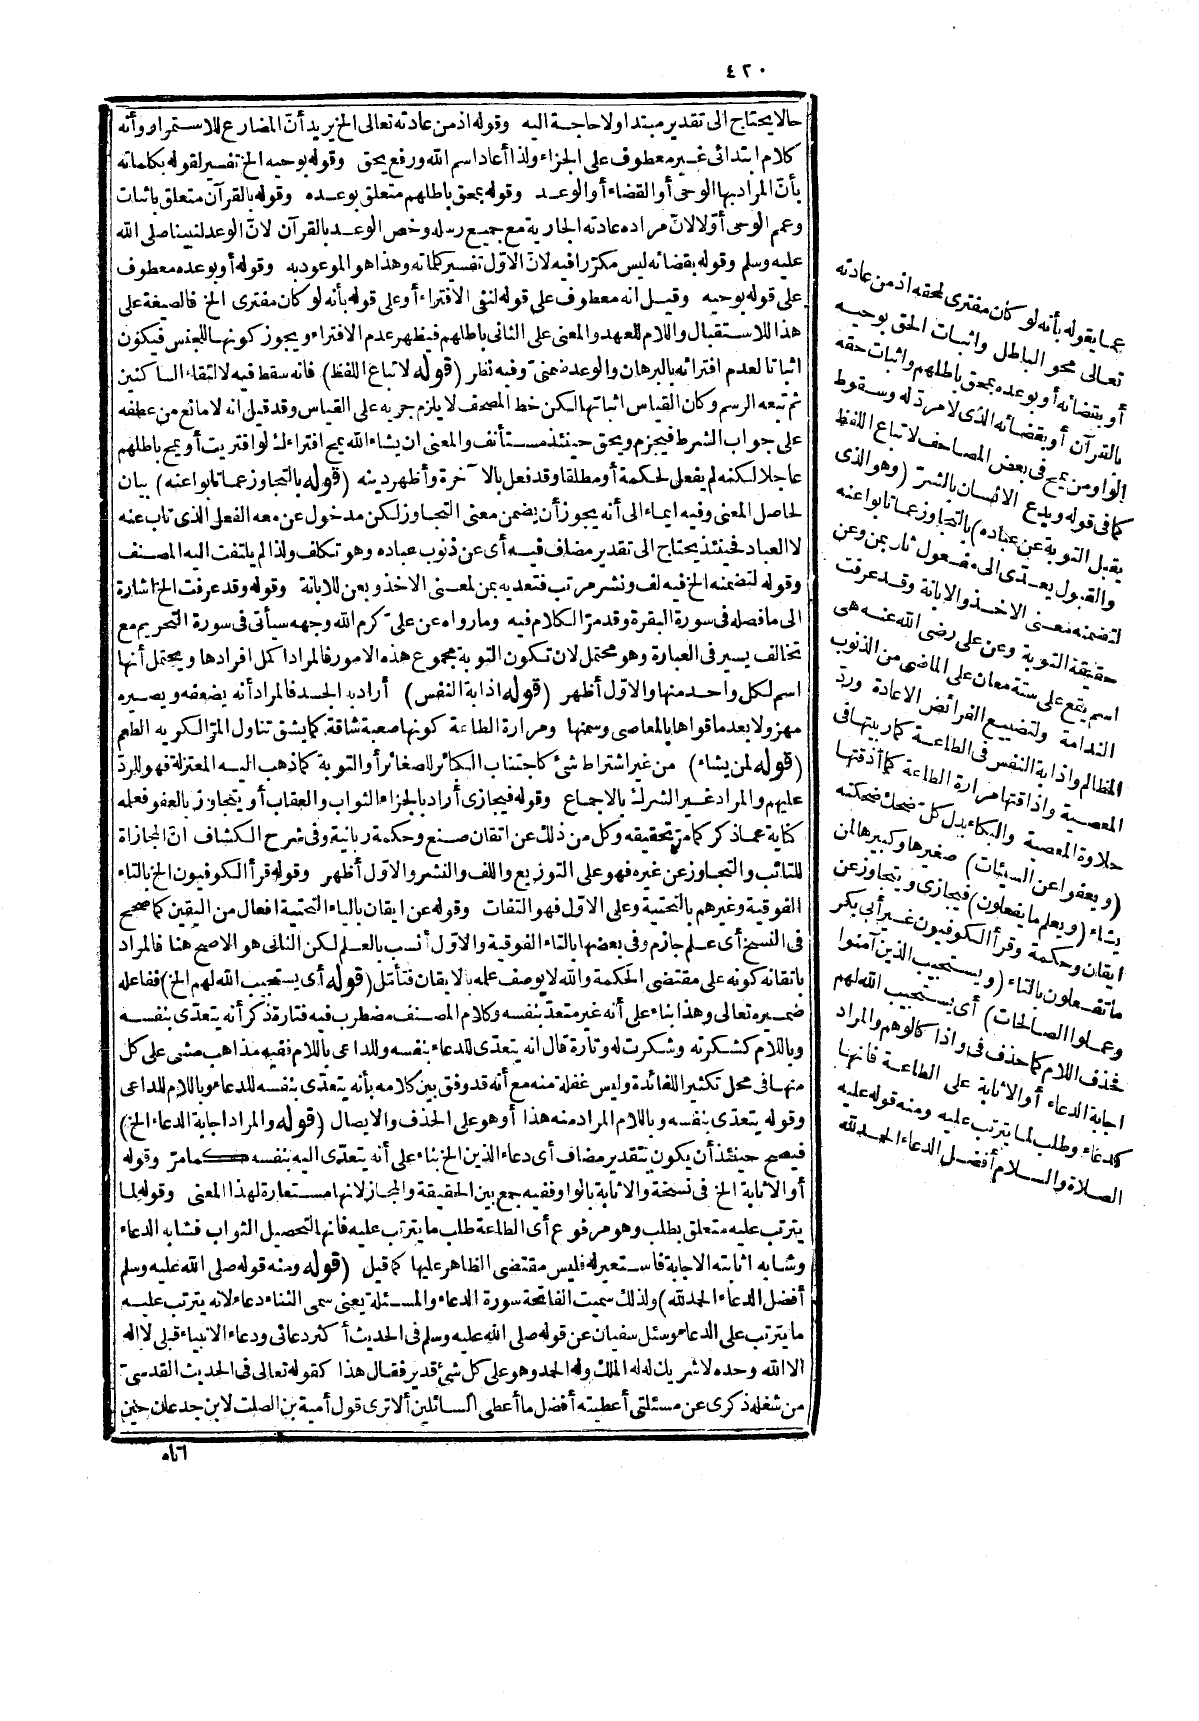 ٤٢٠
حالا يحتاج الى تقدير مبتدا ولا حاجة اليه وقوله اذ من عادته تعالى الخ يريد أن المضارع للاستمرار وأنه
كلام ابتدائى غير معطوف على الجزاء ولذا أعاد اسم الله ورفع يحق وقوله بوحيه الخ تفسير لقوله بكلماته
بأن المراد بها الوحى أو القضاء أو الوعد وقوله بمحق باطلهم متعلق بوعده وقوله بالقرآن متعلق باثبات
وعمم الوحى أولا لان مراده عادته الجارية مع جميع رسله وخص الوعد بالقرآن لان الوعد لنبينا صلى الله
عليه وسلم وقوله بقضائه ليس مكررا فيه لان الاول تفسير كلماته وهذا هو الموعود به وقوله أو بوعده معطوف
على قوله بوحيه وقيل انه معطوف على قوله لنفى الافتراء أو على قوله بأنه لو كان مفترى الخ فالصيغة على
هذا للاستقبال واللام للعهد والمعنى على الثانى باطلهم فيظهر عدم الافتراء ويجوز كونها للجنس فيكون
اثباتا لعدم افترائه بالبرهان والوعد ضمنى وفيه نظر (قوله لاتباع اللفظ) فانه سقط فيه لالتقاء الساكنين
ثم تبعه الرسم وكان القياس اثباتها لكن خط المصحف لا يلزم جريه على القياس وقد قيل انه لا مانع من عطفه
على جواب الشرط فيجزم ويحق حينئذ مستأنف والمعنى ان يشاء الله يمح افتراءك لو افتريت أو يمح باطلهم
عاجلا لكنه لم يفعل لحكمة أو مطلقا وقد فعل بالآخرة وأظهر دينه (قوله بالتجاوز عما تابوا عنه) بيان
لحاصل المعنى وفيه ايماء الى أنه يجوز أن يضمن معنى التجاوز لكن مدخول عن معه الفعل الذى تاب عنه
لا العباد فحينئذ يحتاج الى تقدير مضاف فيه أى عن ذنوب عباده وهو تكلف ولذا لم يلتفت اليه المصنف
وقوله لتضمنه الخ فيه لف ونشر مرتب فتعديه بمن لمعنى الاخذ وبعن للابانة وقوله وقد عرفت الخ اشارة
الى ما فصله فى سورة البقرة وقد مر الكلام فيه وما رواه عن على كرم الله وجهه سيأتى فى سورة التحريم مع
تخالف يسير فى العبارة وهو محتمل لان تكون التوبة مجموع هذه الامور فالمراد اكمل افرادها ويحتمل أنها
اسم لكل واحد منها والاول أظهر (قوله اذابة النفس) أراد به الجسد فالمراد أنه يضعفه ويصيره
مهزولا بعد ما قواها بالمعاصى وسمنها ومرارة الطاعة كونها صعبة شاقة كما يشق تناول المر الكريه الطعم
(قوله لمن يشاء) من غير اشتراط شئ كاجتناب الكبائر للصغائر أو التوبة كما ذهب اليه المعتزلة فهو للرد
عليهم والمراد غير الشرك بالاجماع وقوله فيجازى أراد بالجزاء الثواب والعقاب أو يتجاوز بالعفو فعلمه
كناية عما ذكر كما مر تحقيقه وكل من ذلك عن اتقان صنع وحكمة ربانية وفى شرح الكشاف ان المجازاة
للتائب والتجاوز عن غيره فهو على التوزيع واللف والنشر والاول أظهر وقوله قرأ الكوفيون الخ بالتاء
الفوقية وغيرهم بالتحتية وعلى الاول فهو التفات وقوله عن ايقان بالياء التحتية افعال من اليقين كما صحح
فى النسخ أى علم جازم وفى بعضها بالتاء الفوقية والاول أنسب بالعلم لكن الثانى هو الاصح هنا فالمراد
باتقانه كونه على مقتضى الحكمة والله لا يوصف علمه بالايقان فتأمل (قوله أى يستجيب الله لهم الخ) ففاعله
ضميره تعالى وهذا بناء على أنه غير متعد بنفسه وكلام المصنف مضطرب فيه فتارة ذكر أنه يتعدى بنفسه
وباللام كشكرته وشكرت له وتارة قال انه يتعدى للدعاء بنفسه وللداعى باللام ففيه مذاهب مشى على كل
منها فى محل تكثيرا للفائدة وليس غفلة منه مع أنه قد وفق بين كلاميه بأنه يتعدى بنفسه للدعاء وباللام للداعى
وقوله يتعدى بنفسه وباللام المراد منه هذا أو هو على الحذف والايصال (قوله والمراد اجابة الدعاء الخ)
فيصح حينئذ أن يكون بتقدير مضاف أى دعاء الذين الخ بناء على أنه يتعدى اليه بنفسه كما مر وقوله
أو الاثابة الخ فى نسخة والاثابة بالواو ففيه جمع بين الحقيقة والمجاز لانها مستعارة لهذا المعنى وقوله لما
يترتب عليه متعلق بطلب وهو مرفوع أى الطاعة طلب ما يترتب عليه فانها لتحصيل الثواب فشابه الدعاء
وشابه اثابته الاجابة فاستعير له فليس مقتضى الظاهر عليها كما قيل (قوله ومنه قوله صلى الله عليه وسلم
أفضل الدعاء الحمد لله) ولذلك سميت الفاتحة سورة الدعاء والمسئلة يعنى سمى الثناء دعاء لانه يترتب عليه
ما يترتب على الدعاء وسئل سفيان عن قوله صلى الله عليه وسلم فى الحديث أكثر دعائى ودعاء الانبياء قبلى لا اله
الا الله وحده لا شريك له له الملك وله الحمد وهو على كل شئ قدير فقال هذا كقوله تعالى فى الحديث القدسى
من شغله ذكرى عن مسئلتى أعطيته أفضل ما أعطى السائلين ألا ترى قول أمية بن الصلت لابن جدعان حين
أتاه
عما يقوله بأنه لو كان مفترى لمحقه اذ من عادته
تعالى محو الباطل واثبات الحق بوحيه
أو بقضائه أو بوعده بمحق باطلهم واثبات حقه
بالقرآن أو بقضائه الذى لا مرد له وسقوط
الواو من يمح فى بعض المصاحف لاتباع اللفظ
كما فى قوله ويدع الانسان بالشر (وهو الذى
يقبل التوبة عن عباده) بالتجاوز عما تابوا عنه
والقبول يعدى الى مفعول ثان بمن وعن
لتضمنه معنى الاخذ والابانة وقد عرفت
حقيقة التوبة وعن على رضى الله عنه هى
اسم يقع على ستة معان على الماضى من الذنوب
الندامة ولتضييع الفرائض الاعادة ورد
المظالم واذابة النفس فى الطاعة كما ربيتها فى
المعصية واذاقتها مرارة الطاعة كما أذقتها
حلاوة المعصية والبكاء بدل كل ضحك ضحكته
(ويعفوا عن السيئات) صغيرها وكبيرها لمن
يشاء (ويعلم ما يفعلون) فيجازى ويتجاوز عن
ايقان وحكمة وقرأ الكوفيون غير أبى بكر
ما تفعلون بالتاء (ويستجيب الذين آمنوا
وعملوا الصالحات) أى يستجيب الله لهم
فحذف اللام كما حذف فى واذا كالوهم والمراد
اجابة الدعاء أو الاثابة على الطاعة فانها
كدعاء وطلب لما يترتب عليه ومنه قوله عليه
الصلاة والسلام أفضل الدعاء الحمد لله